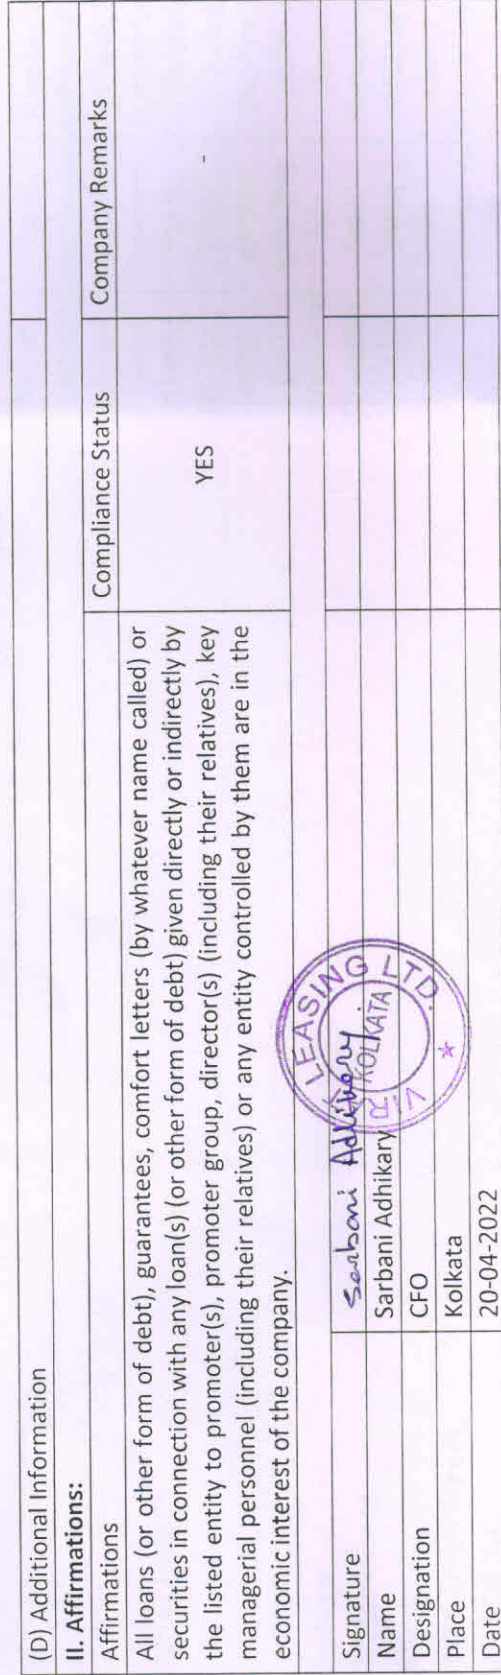 (D) Additional Information
II. Affirmations:
Affirmations Compliance Status Company Remarks
All loans (or other form of debt), guarantees, comfort letters (by whatever name called) or
securities in connection with any loan(s) (or other form of debt) given directly or indirectly by
the listed entity to promoter(s), promoter group, director(s) (including their relatives), key
managerial personnel (including their relatives) or any entity controlled by them are in the
economic interest of the company.
YES
-
Signature Sarbani Adhikary
Name Sarbani Adhikary
Designation CFO
Place Kolkata
Date 20-04-2022
LEASING LTD.
KOLKATA